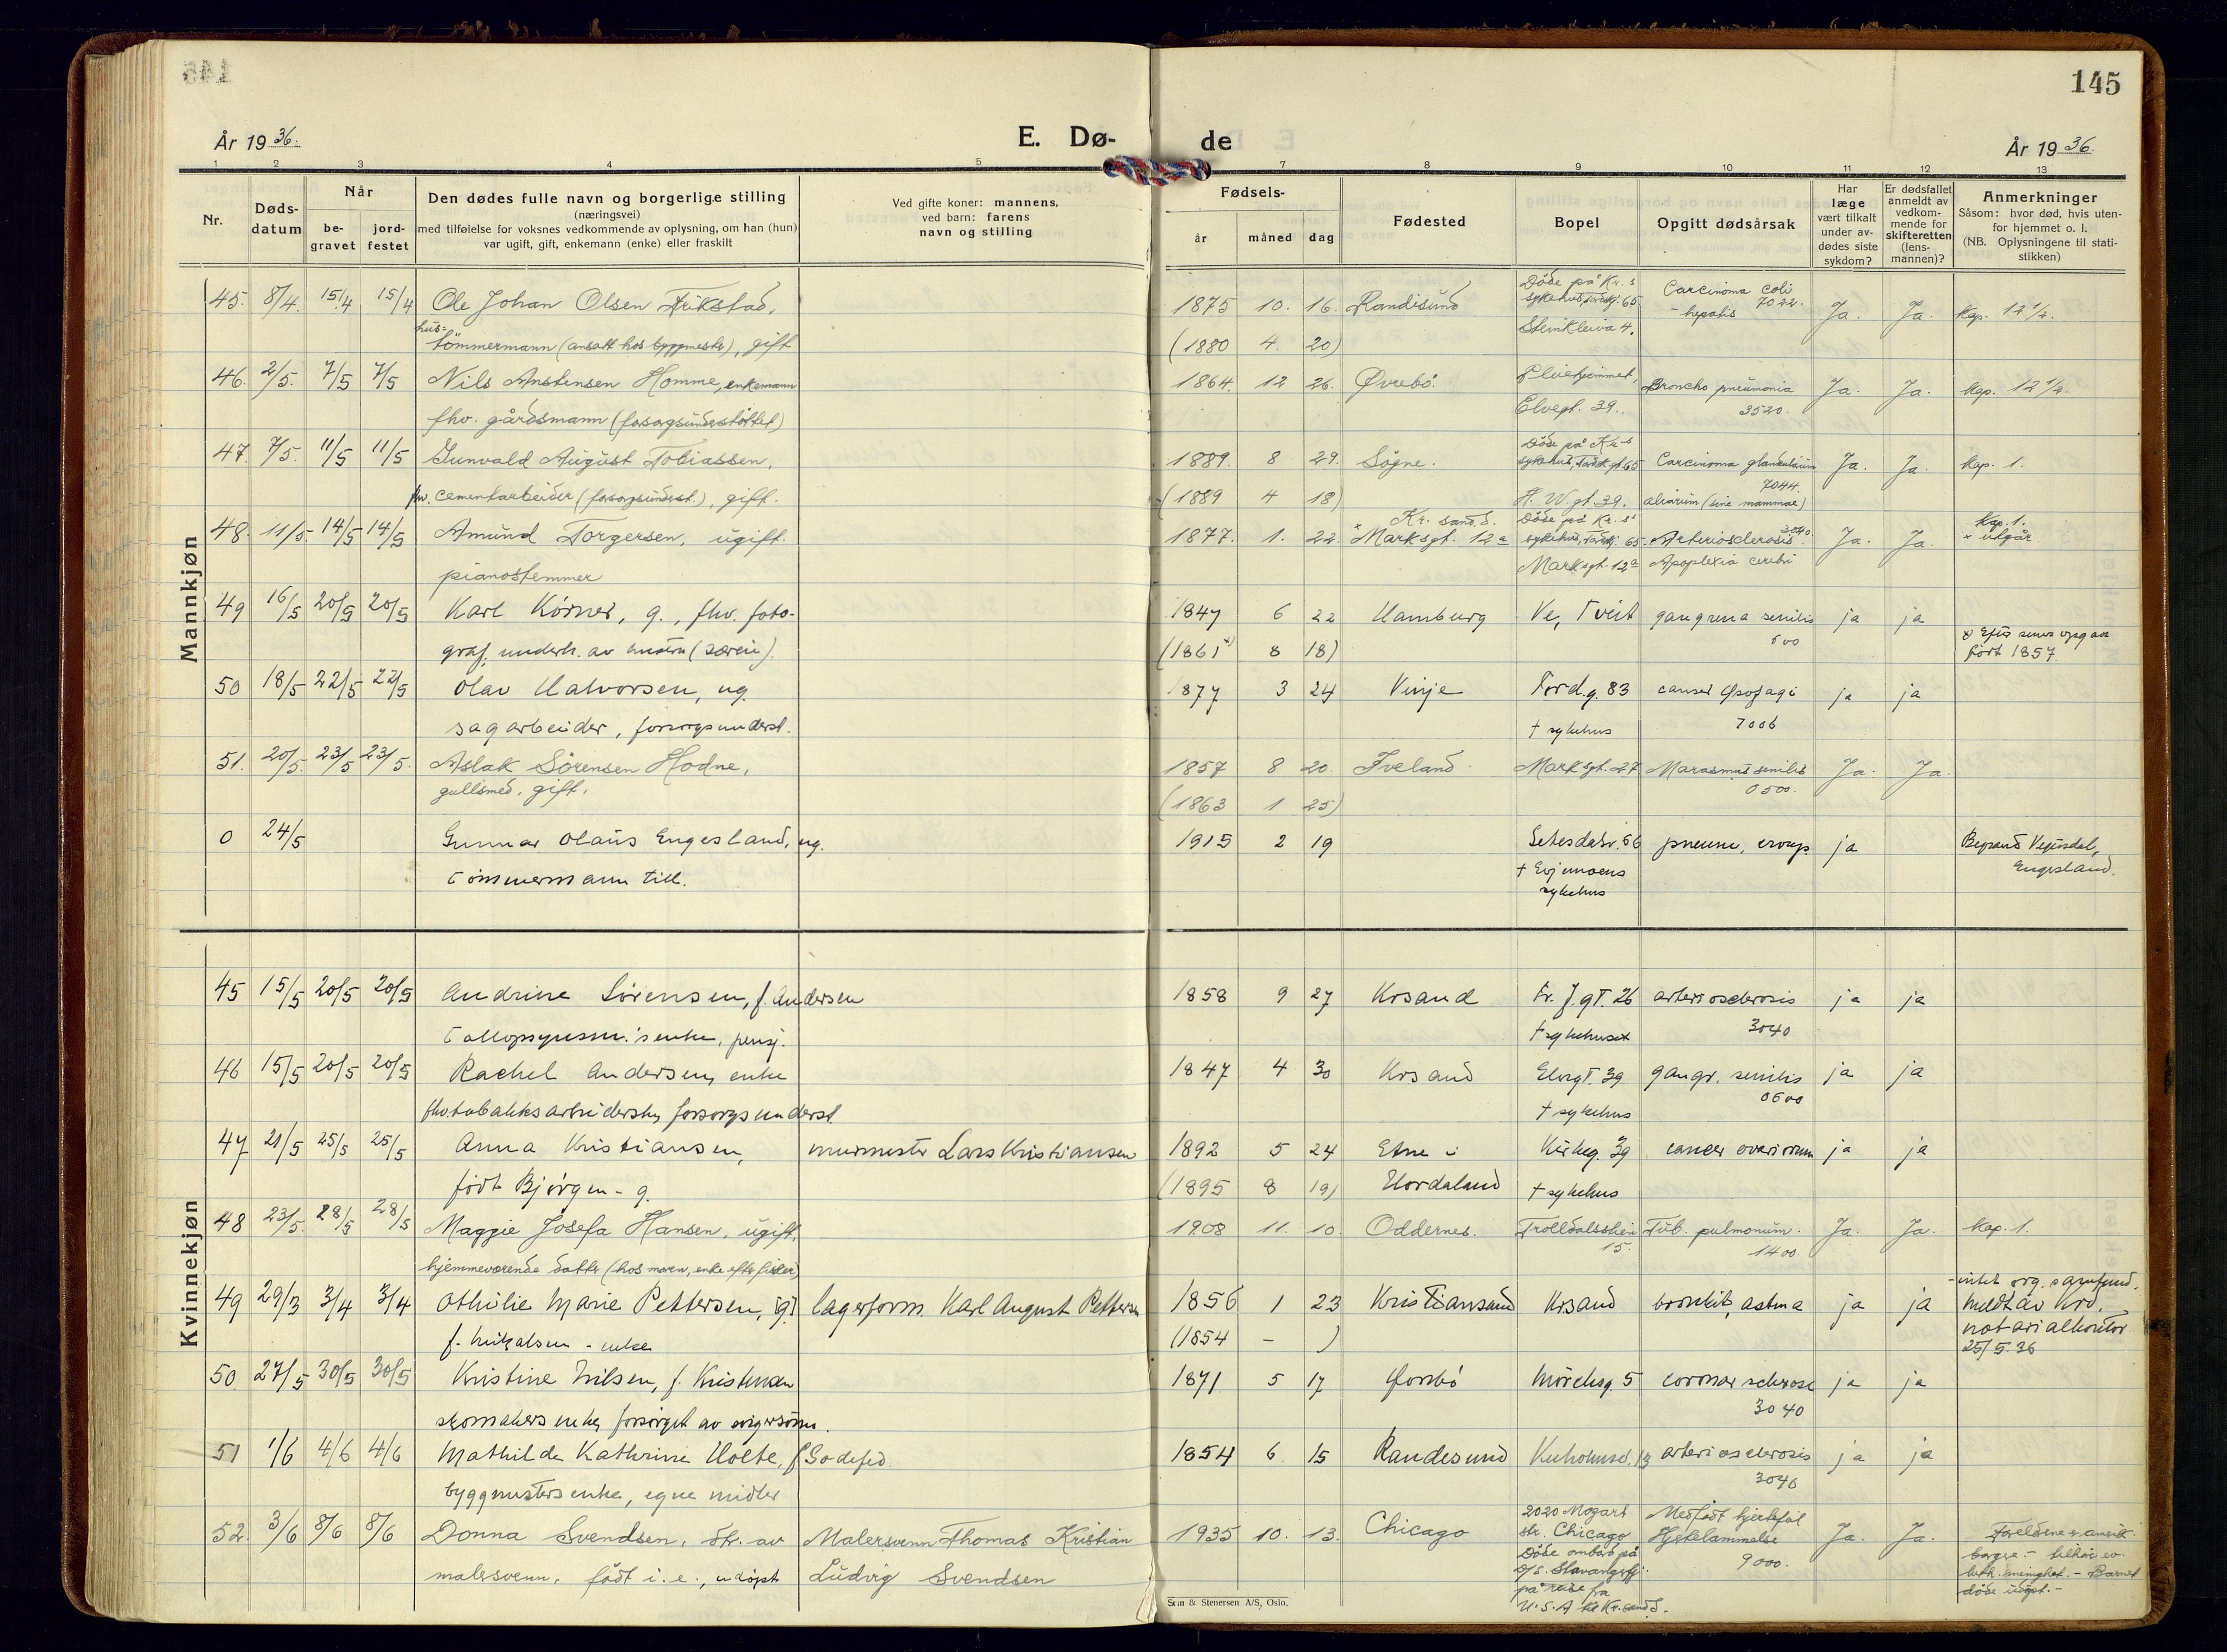 145
År 1936.
E. Dø-
de
År 1936.
1 2 3 4 5 7 8 9 10 11 12 13
Nr.
Døds-
datum
Når
be-
gravet
jord-
festet
Den dødes fulle navn og borgerlige stilling
(næringsvei)
med tilføielse for voksnes vedkommende av oplysning, om han (hun)
var ugift, gift, enkemann (enke) eller fraskilt
Ved gifte koner: mannens,
ved barn: farens
navn og stilling
Fødsels-
år måned dag
Fødested
Bopel
Opgitt dødsårsak
Har
læge
vært tilkalt
under av-
dødes siste
sykdom?
Er dødsfallet
anmeldt av
vedkom-
mende for
skifteretten
(lens-
mannen)?
Anmerkninger
Såsom: hvor død, hvis uten-
for hjemmet o. l.
(NB. Oplysningene til stati-
stikken)
Mannkjøn
45. 8/4. 15/4 15/4 Ole Johan Olsen Frikstad, 1875 10. 16. Randisund Døde på Kr. s sykehus, Tordkj. 65 Steinkleiva 4. Carcinoma coli - hepatis 7022. Ja. Ja. Kap. 12 1/2.
hus-
tømmermann (ansatt hos byggmester), gift (1880 4. 20)
46. 2/5. 7/5 7/5 Nils Anstensen Homme, enkemann 1864. 12 26. Øvrebö. Pleiehjemmet, Elvegt. 39. Broncho pneumonia 3520. Ja. Ja. Kap. 12 1/2.
fhv. gårdsmann (forsorgsunderstøttet)
47. 7/5. 11/5 11/5 Gunvald August Tobiassen, 1889. 8 29. Sögne. Döde på Kr-s sykehus, Tordk.gt. 65 H. W. gt. 39. Carcinoma 7044. (sine mammae) Ja. Ja. Kap. 1.
fhv. cementarbeider (forsorgsunderst.), gift. (1889 4 18)
48. 11/5. 14/5 14/5 Amund Torgersen, ugift. 1877. 1. 22. Kr. sand. S. x Marksgt. 12a Döde på Kr. s. sykehus, Tordkj. 65. Marksgt. 12a Arteriosclerosis 3040. Apoplexia cerebri Ja. Ja. Kap. 1. x utgår
pianostemmer
49 16/5 20/5 20/5 Karl Körner, g., fhv. foto- 1847 6 22 Hamburg Ve, Tveit gangrena senilis 600 ja ja
graf, underh. av hustru (1861 x) 8 18) x) Efter senere opgave født 1857.
50 18/5 22/5 22/5 Olav Halvorsen, ug. 1877 3 24 Vinje Tord.g. 83 + sykehus cancer øsofagi 7006 ja ja
sagarbeider, forsorgsunderst.
51. 20/5. 23/5 23/5. Aslak Sörensen Hodne, 1857 8 20. Iveland. Marksgt. 27 Marasmus senilis 0500. Ja. Ja.
gullsmed, gift. (1863 1 25)
0 24/5 Gunnar Olaus Engesland, ug. 1915 2 19 Setesdalsv. 66 + Evjemoens sykehus pneum. croup. ja Begravd Vegusdal, Engesland.
Tømmermann till.
Kvinnekjøn
45 15/5 20/5 20/5 Andrine Sörensen, f. Andersen 1858 9 27 Krsand Fr. J. gt. 26 + sykehuset arteriosclerosis 3040 ja ja
enke, pensj.
46 15/5 20/5 20/5 Rachel Andersen, enke 1847 4 30 Krsand Elvegt. 39 + sykehus gangr. senilis 0600 ja ja
fhv. tobakksarbeiderske, forsorgsunderst
47 21/5 25/5 25/5 Anna Kristiansen, murmester Lars Kristiansen 1892 5 24 Etne i Kirkeg. 39 cancer ovariorum ja ja
født Bjørgen - g. (1895 8 19) Hordaland + sykehus
48 23/5. 28/5 28/5 Maggie Josefa Hansen, ugift. 1908 11. 10. Oddernes. Trolldalssteien 15. Tub. pulmonum. 1400. Ja. Ja. Kap. 1.
hjemmeværende datter (hos moren, enke efter fisker)
49 29/3 3/4 3/4 Othilie Marie Pettersen, [g] lagerform. Karl August Pettersen 1856 1 23 Kristiansand Krsand bronkit, astma ja ja - intet org. samfund. Meldt av Krs. notarialkontor 25/5. 36
f. Mikalsen - enke (1854 - )
50 27/5 30/5 30/5 Kristine Nilsen, f. Kristensen 1871 5 17 Mörcksg. 5 coronar sclerose 3040 ja ja
skomakers enke, forsörget av svigersönn.
51 1/6 4/6 4/6 Mathilde Kathrine Holte, f. Godtfred. 1854 6 15 Randesund Kuholmsv. 13 arteriosclerosis 3040 ja ja
byggmesters enke, egne midler
52. 3/6 8/6 8/6 Donna Svendsen, dtr. av Malersvenn Thomas Kristian 1935 10. 13. Chicago 2020 Mozart str. Chicago Medfødt hjertefeil Hjertelammelse 9000. Ja. Ja. Foreldrene er amerik borgere. - tilhör ev. luth. menighet. - Barnet döde udöpt. -
malersvenn, født i. e., udöpt Ludvig Svendsen Döde ombord på D/S. Stavangerfj. på reise fra U.S.A til Kr.sand S.
Sem & Stenersen A/S, Oslo.